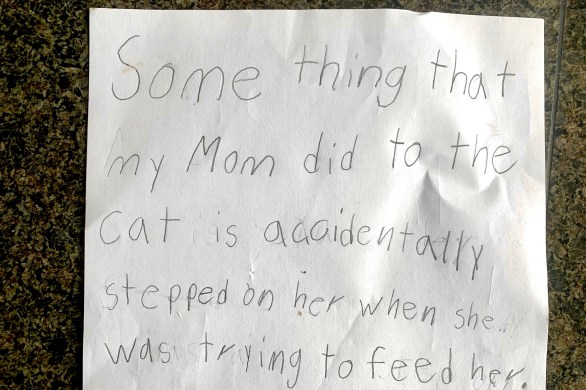 Some thing that
my Mom did to the
Cat is acaidentally
stepped on her when she
was trying to feed her.